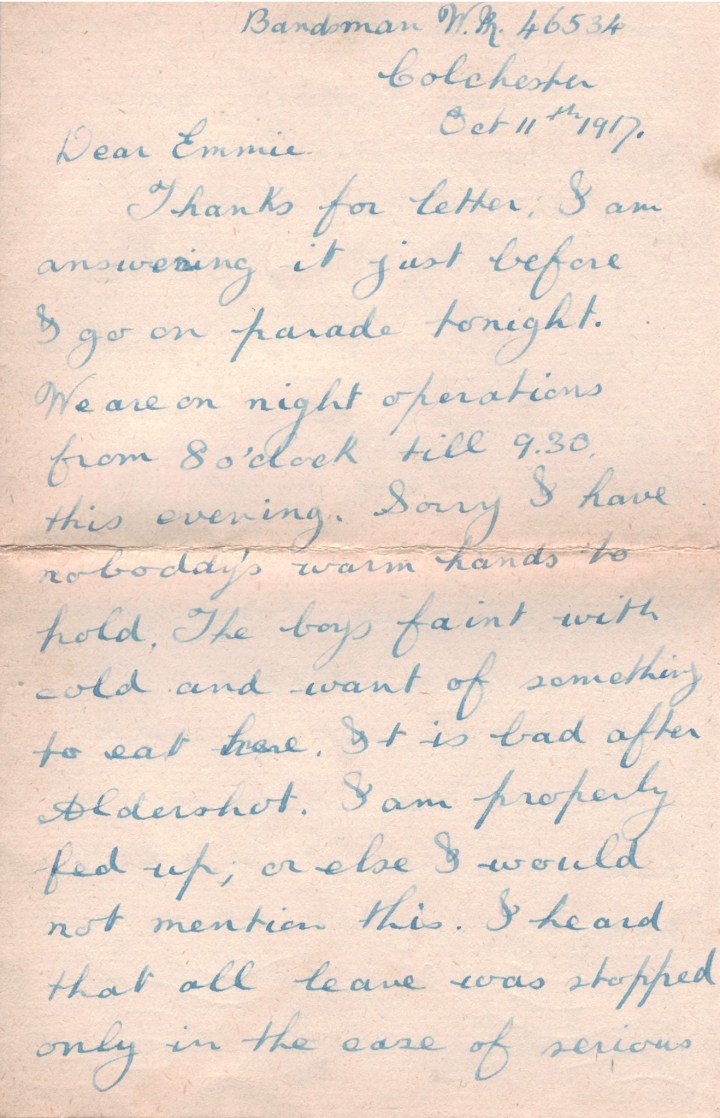 Bandsman W.R. 46534
Colchester
Oct 11th 1917.
Dear Emmie
Thanks for letter, I am
answering it just before
I go on parade tonight.
We are on night operations
from 8 o'clock till 9.30.
this evening. Sorry I have
noboddy's warm hands to
hold. The boys faint with
cold and want of something
to eat here. It is bad after
Aldershot. I am properly
fed up, or else I would
not mention this. I heard
that all leave was stopped
only in the case of serious